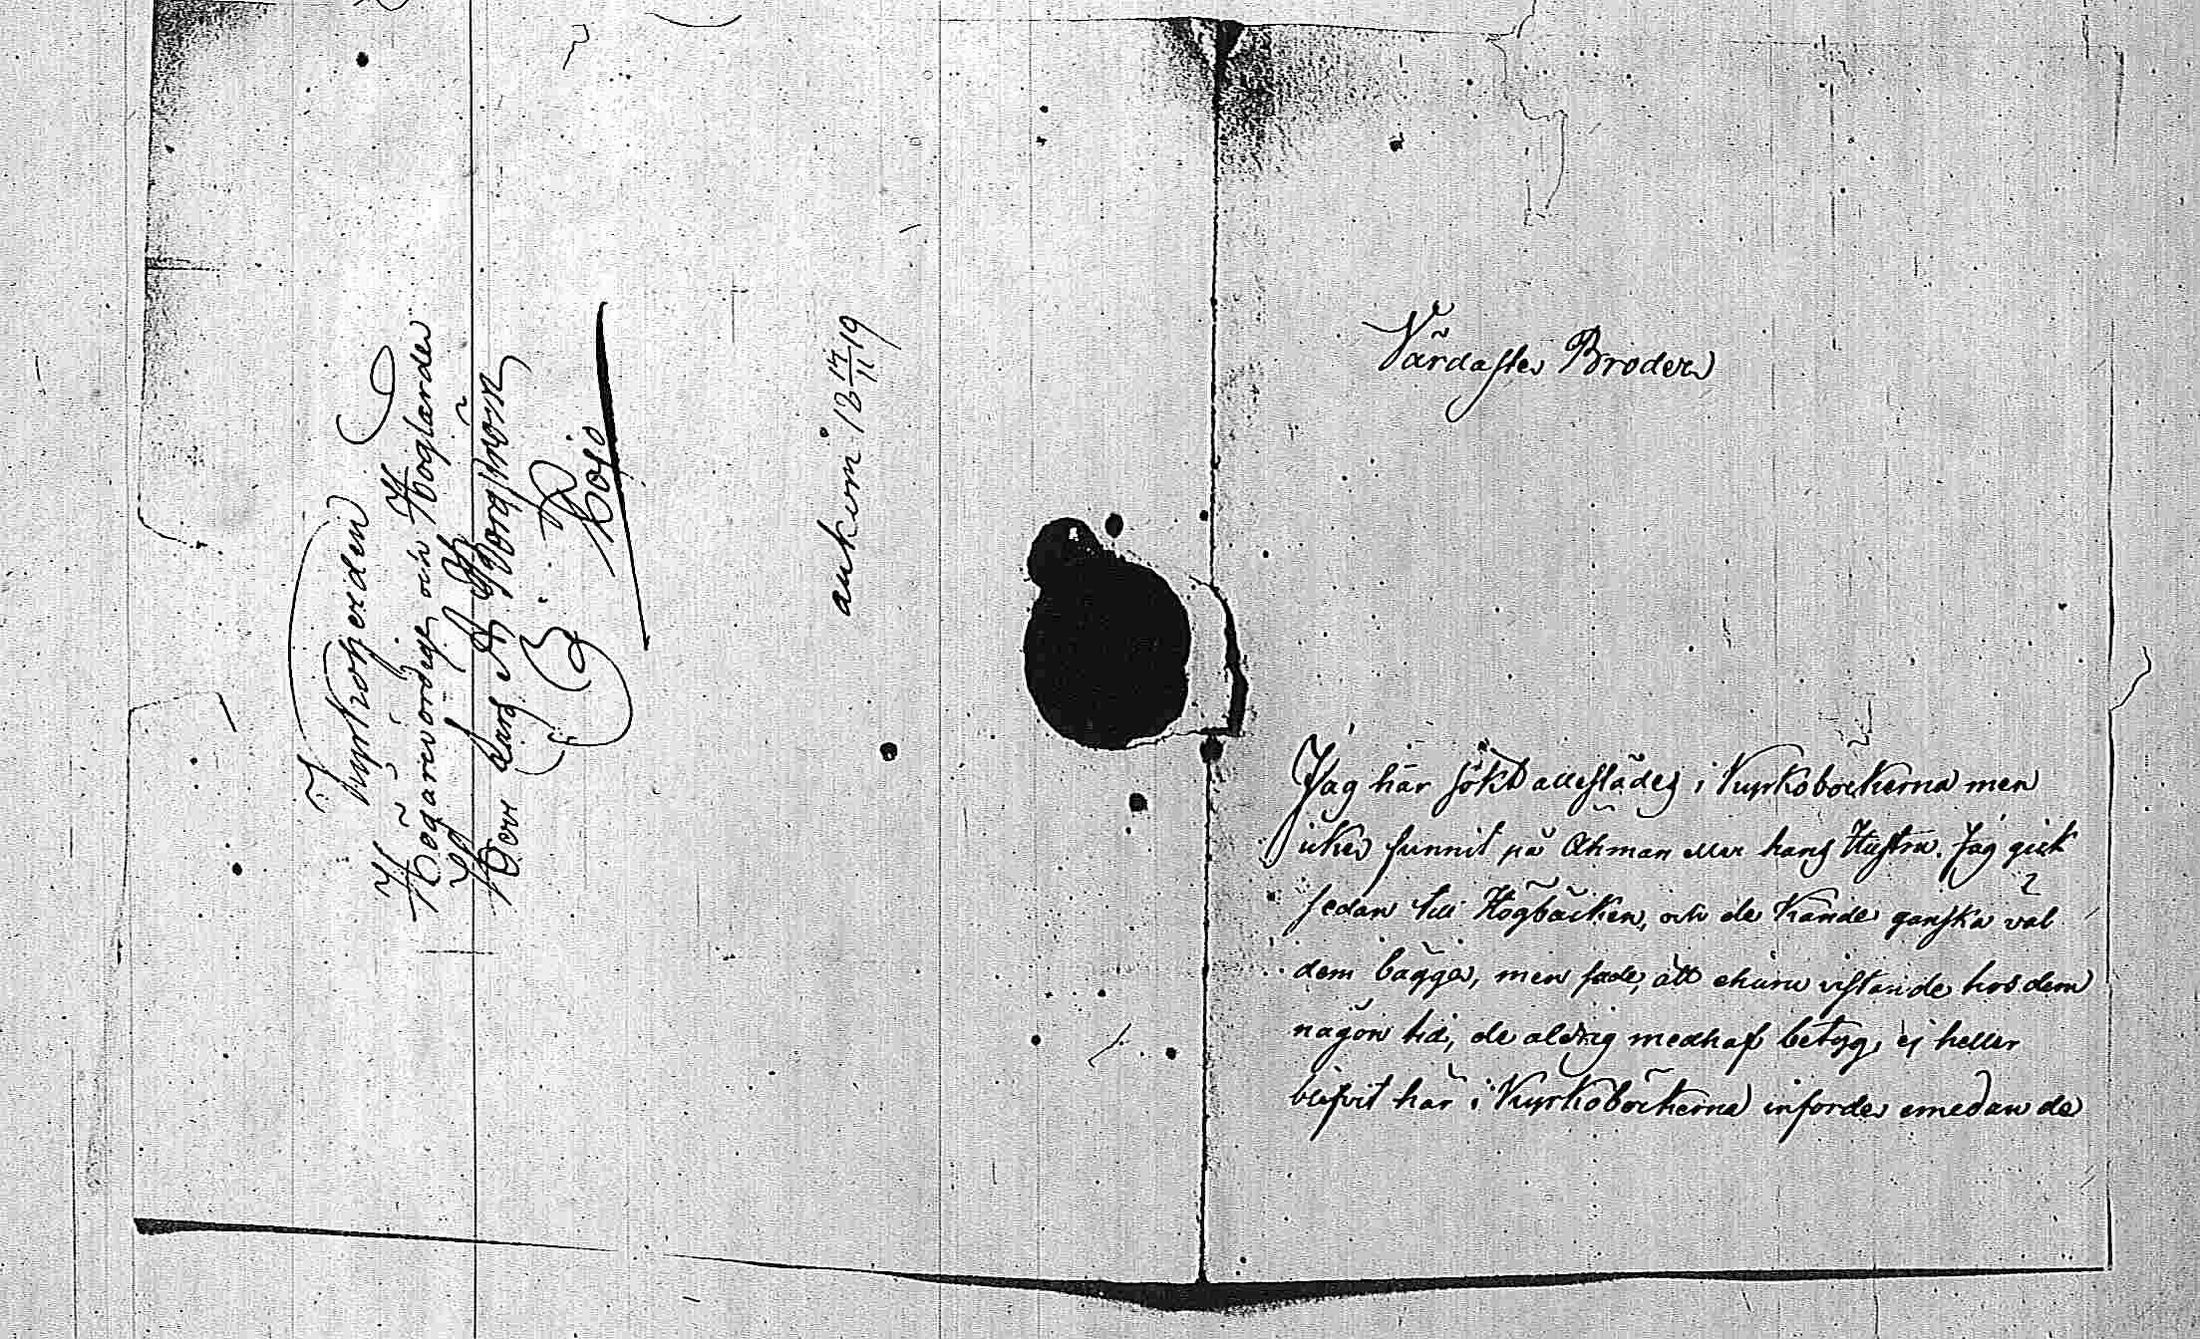 Kyrkoherden
Högärevördige och Höglärde
Herr Lars A Borgström
Röjo
ankom 18 17/11 19
Värdaste Broder
Jag har sökt allestädes i Kyrkoböckerna men
icke funnit på Åhman eller hans Hustru. Jag gick
sedan till Högbäcken, och de kände ganska väl
dem bägge, men sade, att ehuru vistande hos dem
någon tid, de aldrig medhaft betyg, ej heller
blifvit här i Kyrkoböckerna införde emedan de